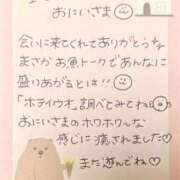 おにいさま
会いに来てくれてありがとうな
まさかお魚トークであんなに
盛りあがるとは!!
「ホテイウオ」調べてみてね
おにいさまのホワホワな
感じに癒されました♡
また遊んでね♡